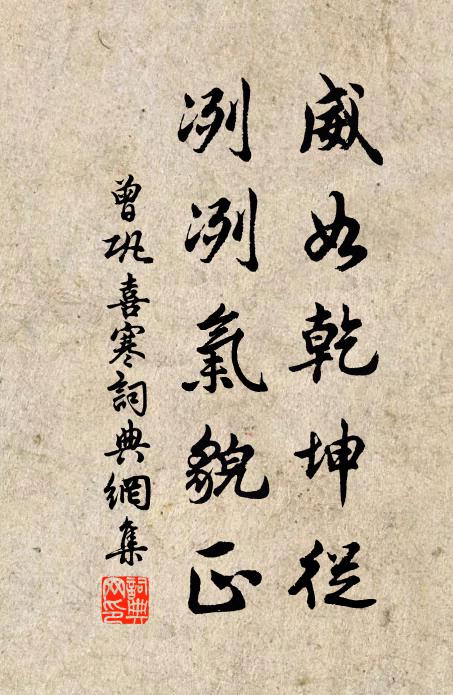 威如乾坤從
冽冽氣貌正
曾巩喜寒詞典網集
詞典網印